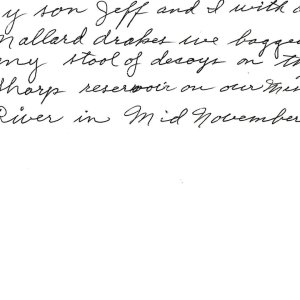 y son Jeff and I with a
Mallard drakes we bagge
my stool of decoys on th
Sharp reservoir on our Mis
River in Mid November